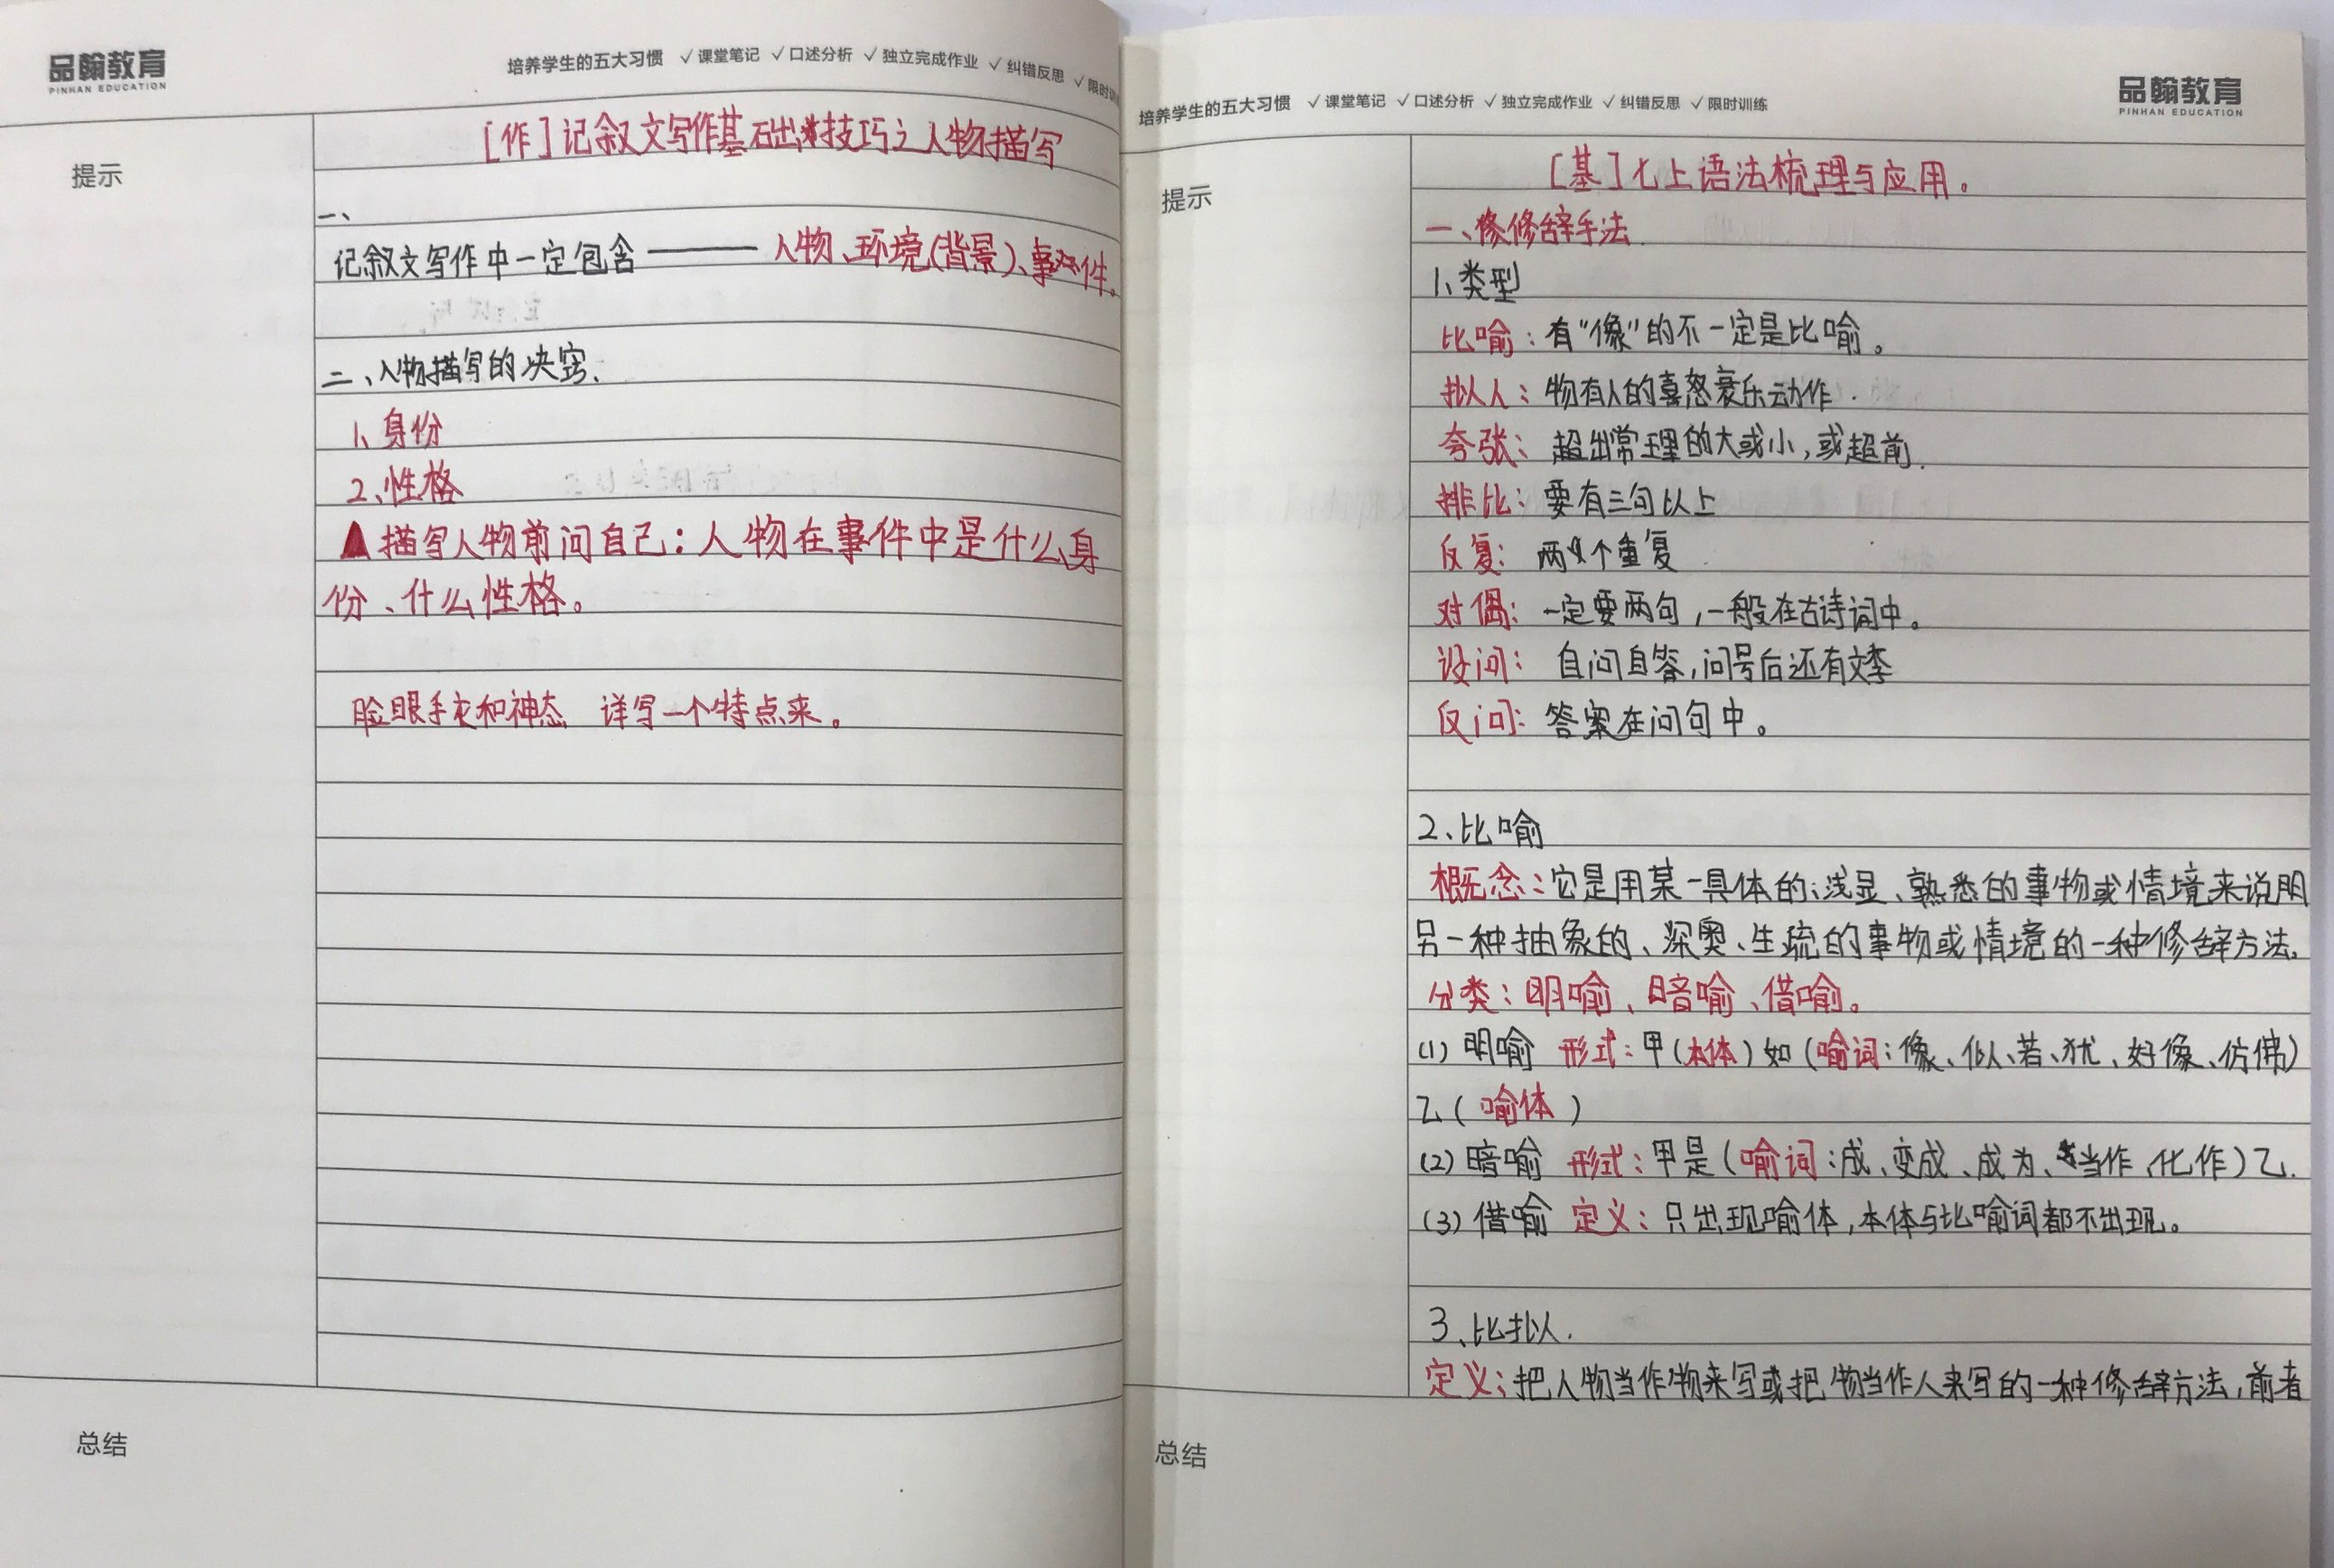 品翰教育
PINHAN EDUCATION
培养学生的五大习惯 √课堂笔记 √口述分析 √独立完成作业 √纠错反思 √限时训
提示
[作]记叙文写作基础技巧之人物描写
一、
记叙文写作中一定包含——人物、环境(背景)、事件。
二、人物描写的决窍.
1、身份
2、性格
▲描写人物前问自己:人物在事件中是什么身
份、什么性格。
脸眼手衣和神态 详写一个特点来。
总结
培养学生的五大习惯 √课堂笔记 √口述分析 √独立完成作业 √纠错反思 √限时训练
品翰教育
PINHAN EDUCATION
提示
[基]七上语法梳理与应用。
一、修辞手法
1、类型
比喻:有"像"的不一定是比喻。
拟人:物有人的喜怒哀乐动作.
夸张:超出常理的大或小,或超前.
排比:要有三句以上
反复:两个重复
对偶:一定要两句,一般在古诗词中。
设问:自问自答,问号后还有文季
反问:答案在问句中。
2、比喻
概念:它是用某一具体的、浅显、熟悉的事物或情境来说明
另一种抽象的、深奥、生疏的事物或情境的一种修辞方法.
分类:明喻、暗喻、借喻。
(1)明喻 形式:甲(本体)如(喻词:像、似、若、犹、好像、仿佛)
乙(喻体)
(2)暗喻 形式:甲是(喻词:成、变成、成为、当作、化作)乙.
(3)借喻 定义:只出现喻体,本体与比喻词都不出现。
3、比拟人.
定义:把人物当作物来写或把物当作人来写的一种修辞方法,前者
总结